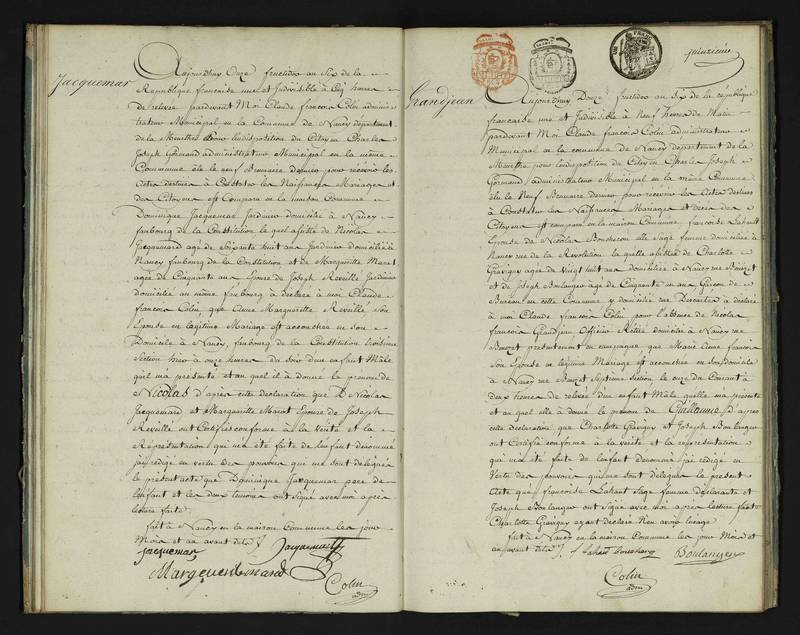 Jacquemar
Aujourdhuy Onze fructidor an Six de la
République française une et Indivisible à Cinq heures
de relevée pardevant Moi Claude françois Colin administrateur
Municipal en la Commune de Nancy département
de la Meurthe pour lindisposition du Citoyen Charles
Joseph Gormand administrateur Municipal en la même
Commune élu le neuf Brumaire dernier pour récevoir les
Actes destinés à Constater les Naissances Mariages et
des Citoyens est Comparu en la maison Commune
Dominique Jacquemar Jardinier domicilié à Nancy
faubourg de la Constitution lequel assisté de Nicolas
Jacquemard agé de Soixante huit ans Jardinier domicilié à
Nancy faubourg de la Constitution et de Margueritte Marot
agée de Cinquante ans Epouse de Joseph Reveillé Jardinier
domicilié au même faubourg à déclaré à moi Claude
françois Colin, que Anne Margueritte Reveillé Son
Epouse en legitime Mariage est accouchée en son
Domicile à Nancy, faubourg de la Constitution troisieme
Section hier à onze heures du Soir dun enfant Mâle
quil ma présenté et au quel il à donné le prenom de
Nicolas d'après cette déclaration que D Nicolas
Jacquemard et Margueritte Marot Epouse de Joseph
Reveillé ont Certifié conforme à la Vérité et la
Réprésentation qui ma été faite de lenfant dénommé
jai rédigé en vertu des pouvoirs qui me sont délegués
le présent acte que Dominique Jacquemar pere de
lenfant et les deux témoins ont signé avec moi après
lecture faite
fait à Nancy en la maison Commune les jour
Mois et an avant dits
jacquemar Jacquemart
Colin
adm
quinzieme
Grandjean
Aujourdhuy Douze fructidor an Six de la republique
française une et Indivisible à Neuf heures du Matin
pardevant Moi Claude françois Colin administrateur
Municipal en la commune de Nancy département de la
Meurthe pour lindisposition du Citoyen Charles Joseph
Gormand administrateur Municipal en la même Commune
élu le Neuf Brumaire dernier pour récevoir les Actes destinés
à Constater les Naissances Mariages et décès des
Citoyens est comparu en la maison Commune françoise Lahault
Epouse de Nicolas elle Sage femme domiciliée à
Nancy rue de la Révolution la quelle assistée de Charlotte
Gravigny agée de Vingt huit ans domiciliée à Nancy rue
et de Joseph Boulanger agé de Cinquante un ans Garcon de
Bureau en cette Commune y domicilié rue Descartes à déclaré
à moi Claude françois Colin pour labsence de Nicolas
françois Grandjean Officier domicilié à Nancy rue
présentement en campagne que Marie Anne françois
Son Epouse en legitime Mariage est accouchée en Son domicile
à Nancy rue Septieme Section, le onze du Courant à
deux heures de relevée dun enfant Mâle quelle ma présenté
et au quel elle à donné le prénom de Guillaume d'après
cette déclaration que Charlotte Gravigny et Joseph Boulanger
ont Certifié conforme à la vérité et la représentation
qui ma été faite de lenfant dénommé jai rédigé en
Vertu des pouvoirs qui me sont délegués le présent
Acte que françoise Lahault Sage femme déclarante et
Joseph Boulanger ont signé avec moi après lecture faite
Charlotte Gravigny ayant déclaré nen avoir lusage
fait à Nancy en la maison Commune les jour Mois et
an avant dits
Boulanger
Colin
adm